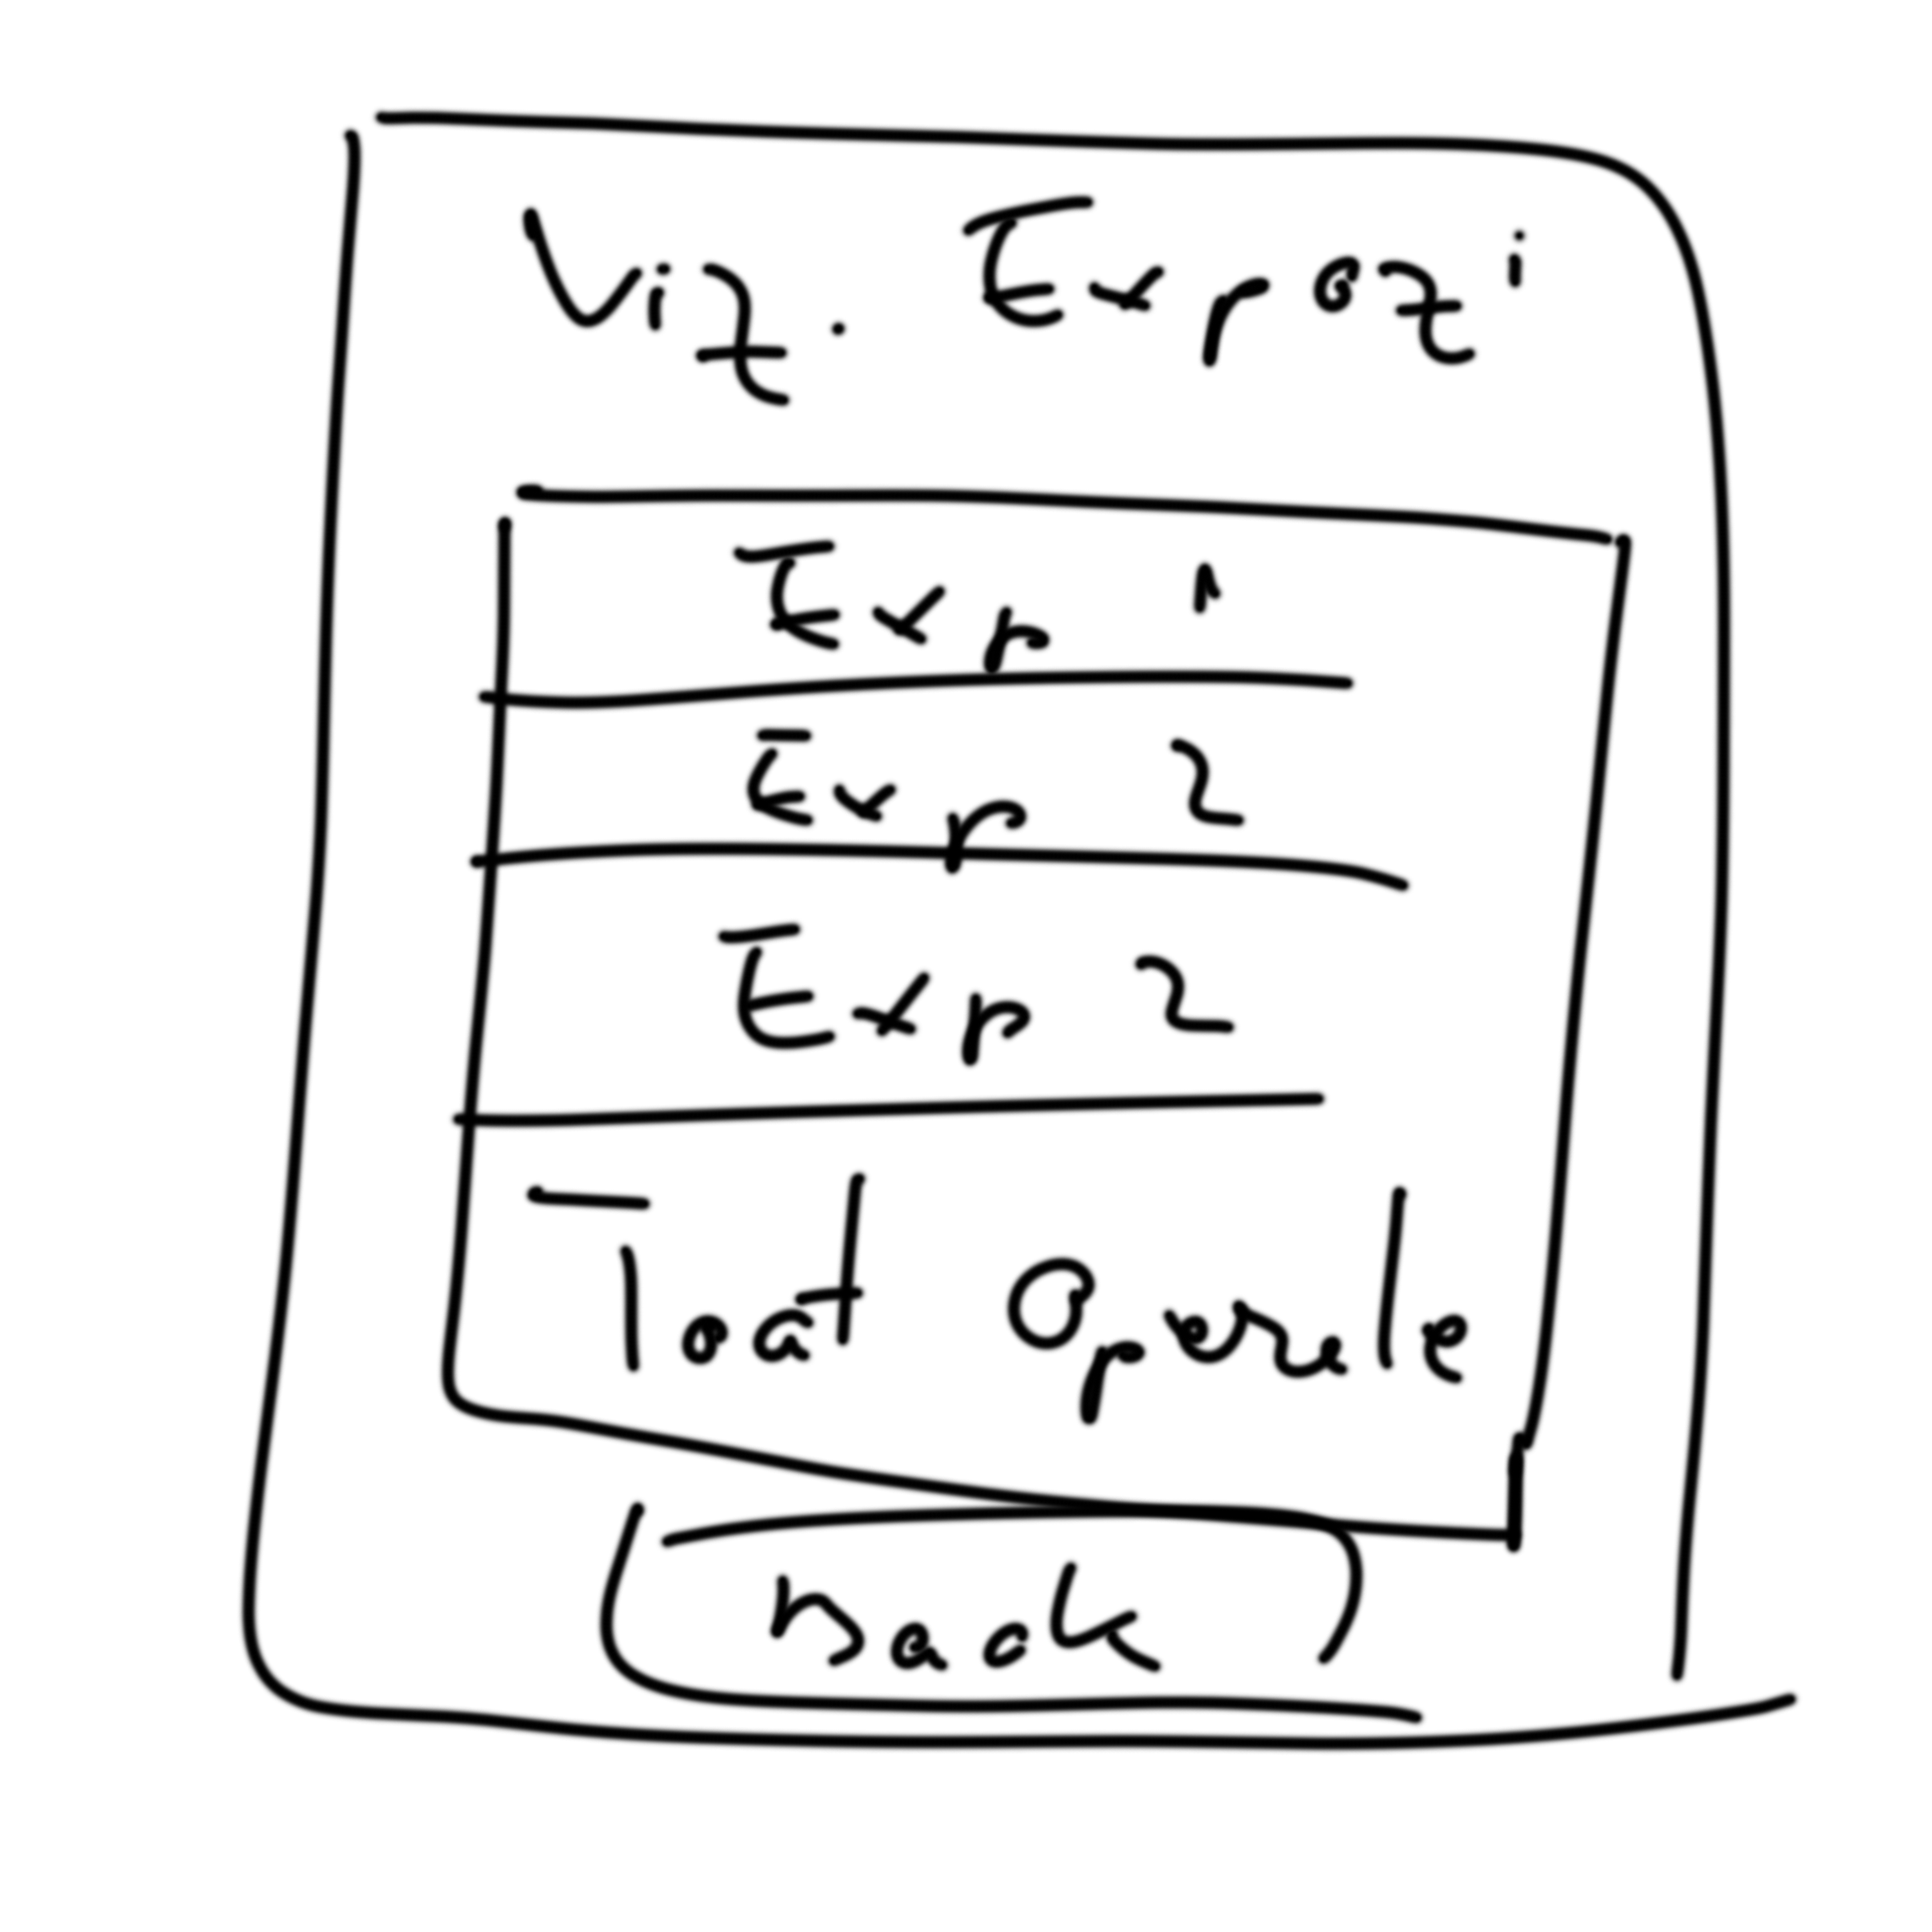 Viz. Expozi
Exp 1
Exp 2
Exp 2
Toat Operele
Back